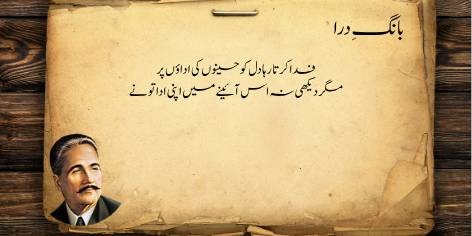 بانگِ درا
فدا کرتا رہا دل کو حسینوں کی اداؤں پر
مگر دیکھی نہ اس آئینے میں اپنی ادا تو نے